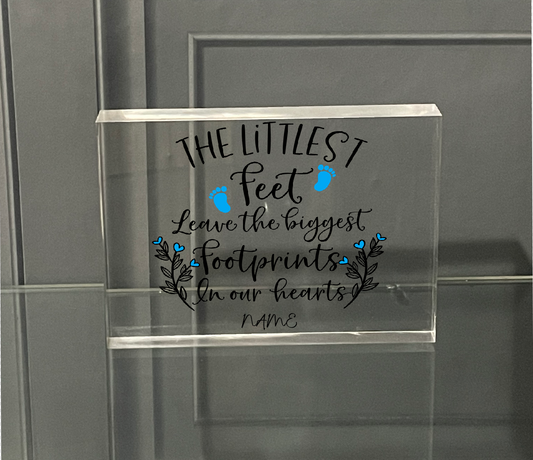 THE LiTTLEST
Feet
Leave the biggest
Footprints
In our hearts
NAME